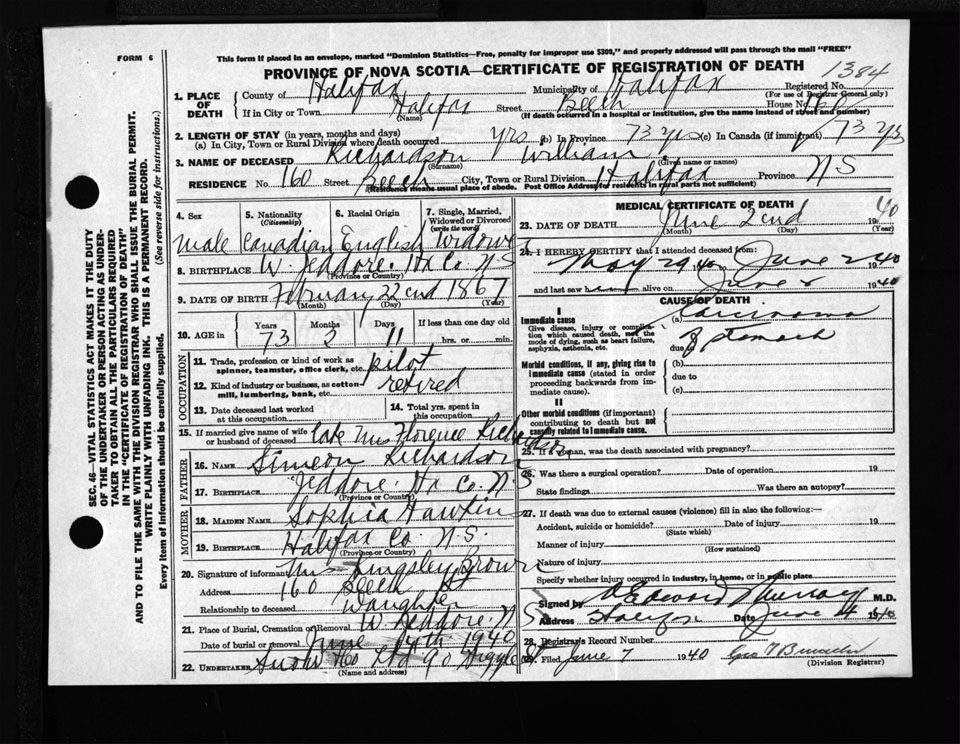 FORM 6
This form if placed in an envelope, marked "Dominion Statistics—Free, penalty for improper use $300," and properly addressed will pass through the mail "FREE"
PROVINCE OF NOVA SCOTIA—CERTIFICATE OF REGISTRATION OF DEATH
1384
SEC. 46—VITAL STATISTICS ACT MAKES IT THE DUTY
OF THE UNDERTAKER OR PERSON ACTING AS UNDER-
TAKER TO OBTAIN ALL THE PARTICULARS REQUIRED
IN THE "CERTIFICATE OF REGISTRATION OF DEATH"
AND TO FILE THE SAME WITH THE DIVISION REGISTRAR WHO SHALL ISSUE THE BURIAL PERMIT.
WRITE PLAINLY WITH UNFADING INK. THIS IS A PERMANENT RECORD.
Every item of information should be carefully supplied. (See reverse side for instructions.)
1. PLACE OF DEATH
County of Halifax Municipality of Halifax Registered No.
(For use of Registrar General only)
If in City or Town Halifax Street Beech House No. 160
(Name) (If death occurred in a hospital or institution, give the name instead of street and number)
2. LENGTH OF STAY (in years, months and days)
(a) In City, Town or Rural Division where death occurred yrs (b) In Province 73 yrs (c) In Canada (if immigrant) 73 yrs
3. NAME OF DECEASED Richardson William
(Surname) (Given name or names)
RESIDENCE No. 160 Street Beech City, Town or Rural Division Halifax Province N S
(Residence means usual place of abode. Post Office Address for residents in rural parts not sufficient)
4. Sex
5. Nationality (Citizenship)
6. Racial Origin
7. Single, Married, Widowed or Divorced (write the word)
Male Canadian English Widower
8. BIRTHPLACE W. Jeddore Hx Co. N S
(Province or Country)
9. DATE OF BIRTH February 22nd 1867
(Month) (Day) (Year)
10. AGE in Years Months Days If less than one day old
73 3 11 hrs. or min.
OCCUPATION
11. Trade, profession or kind of work as spinner, teamster, office clerk, etc. pilot
12. Kind of industry or business, as cotton-mill, lumbering, bank, etc. retired
13. Date deceased last worked at this occupation
14. Total yrs. spent in this occupation
15. If married give name of wife or husband of deceased late Mrs Florence Richardson
FATHER
16. NAME Simeon Richardson
17. BIRTHPLACE Jeddore Hx Co. N.S
(Province or Country)
MOTHER
18. MAIDEN NAME Sophia Hawkins
19. BIRTHPLACE Halifax Co. N.S.
(Province or Country)
20. Signature of informant Mrs Kingsley Brown
Address 160 Beech St
Relationship to deceased Daughter
21. Place of Burial, Cremation or Removal W. Jeddore. N S
Date of burial or removal June 4th 1940
22. UNDERTAKER Snow & Co Ltd 90 Argyle St
(Name and address)
MEDICAL CERTIFICATE OF DEATH
23. DATE OF DEATH June 2nd 1940
(Month) (Day) (Year)
24. I HEREBY CERTIFY that I attended deceased from:
May 29 1940 June 2 1940
and last saw him alive on June 2 1940
CAUSE OF DEATH
I
Immediate cause (a) Carcinoma
Give disease, injury or complication which caused death, not the mode of dying, such as heart failure, asphyxia, asthenia, etc.
due to of stomach
Morbid conditions, if any, giving rise to immediate cause (stated in order proceeding backwards from immediate cause).
(b)
due to
(c)
II
Other morbid conditions (if important) contributing to death but not causally related to immediate cause.
25. If a woman, was the death associated with pregnancy?
26. Was there a surgical operation? Date of operation 19
State findings Was there an autopsy?
27. If death was due to external causes (violence) fill in also the following:—
Accident, suicide or homicide? Date of injury 19
(State which)
Manner of injury
(How sustained)
Nature of injury
Specify whether injury occurred in industry, in home, or in public place
Signed by Edward Murray M.D.
Address Halifax Date June 4 1940
28. Registrar's Record Number
29. Filed June 7 1940
(Division Registrar)